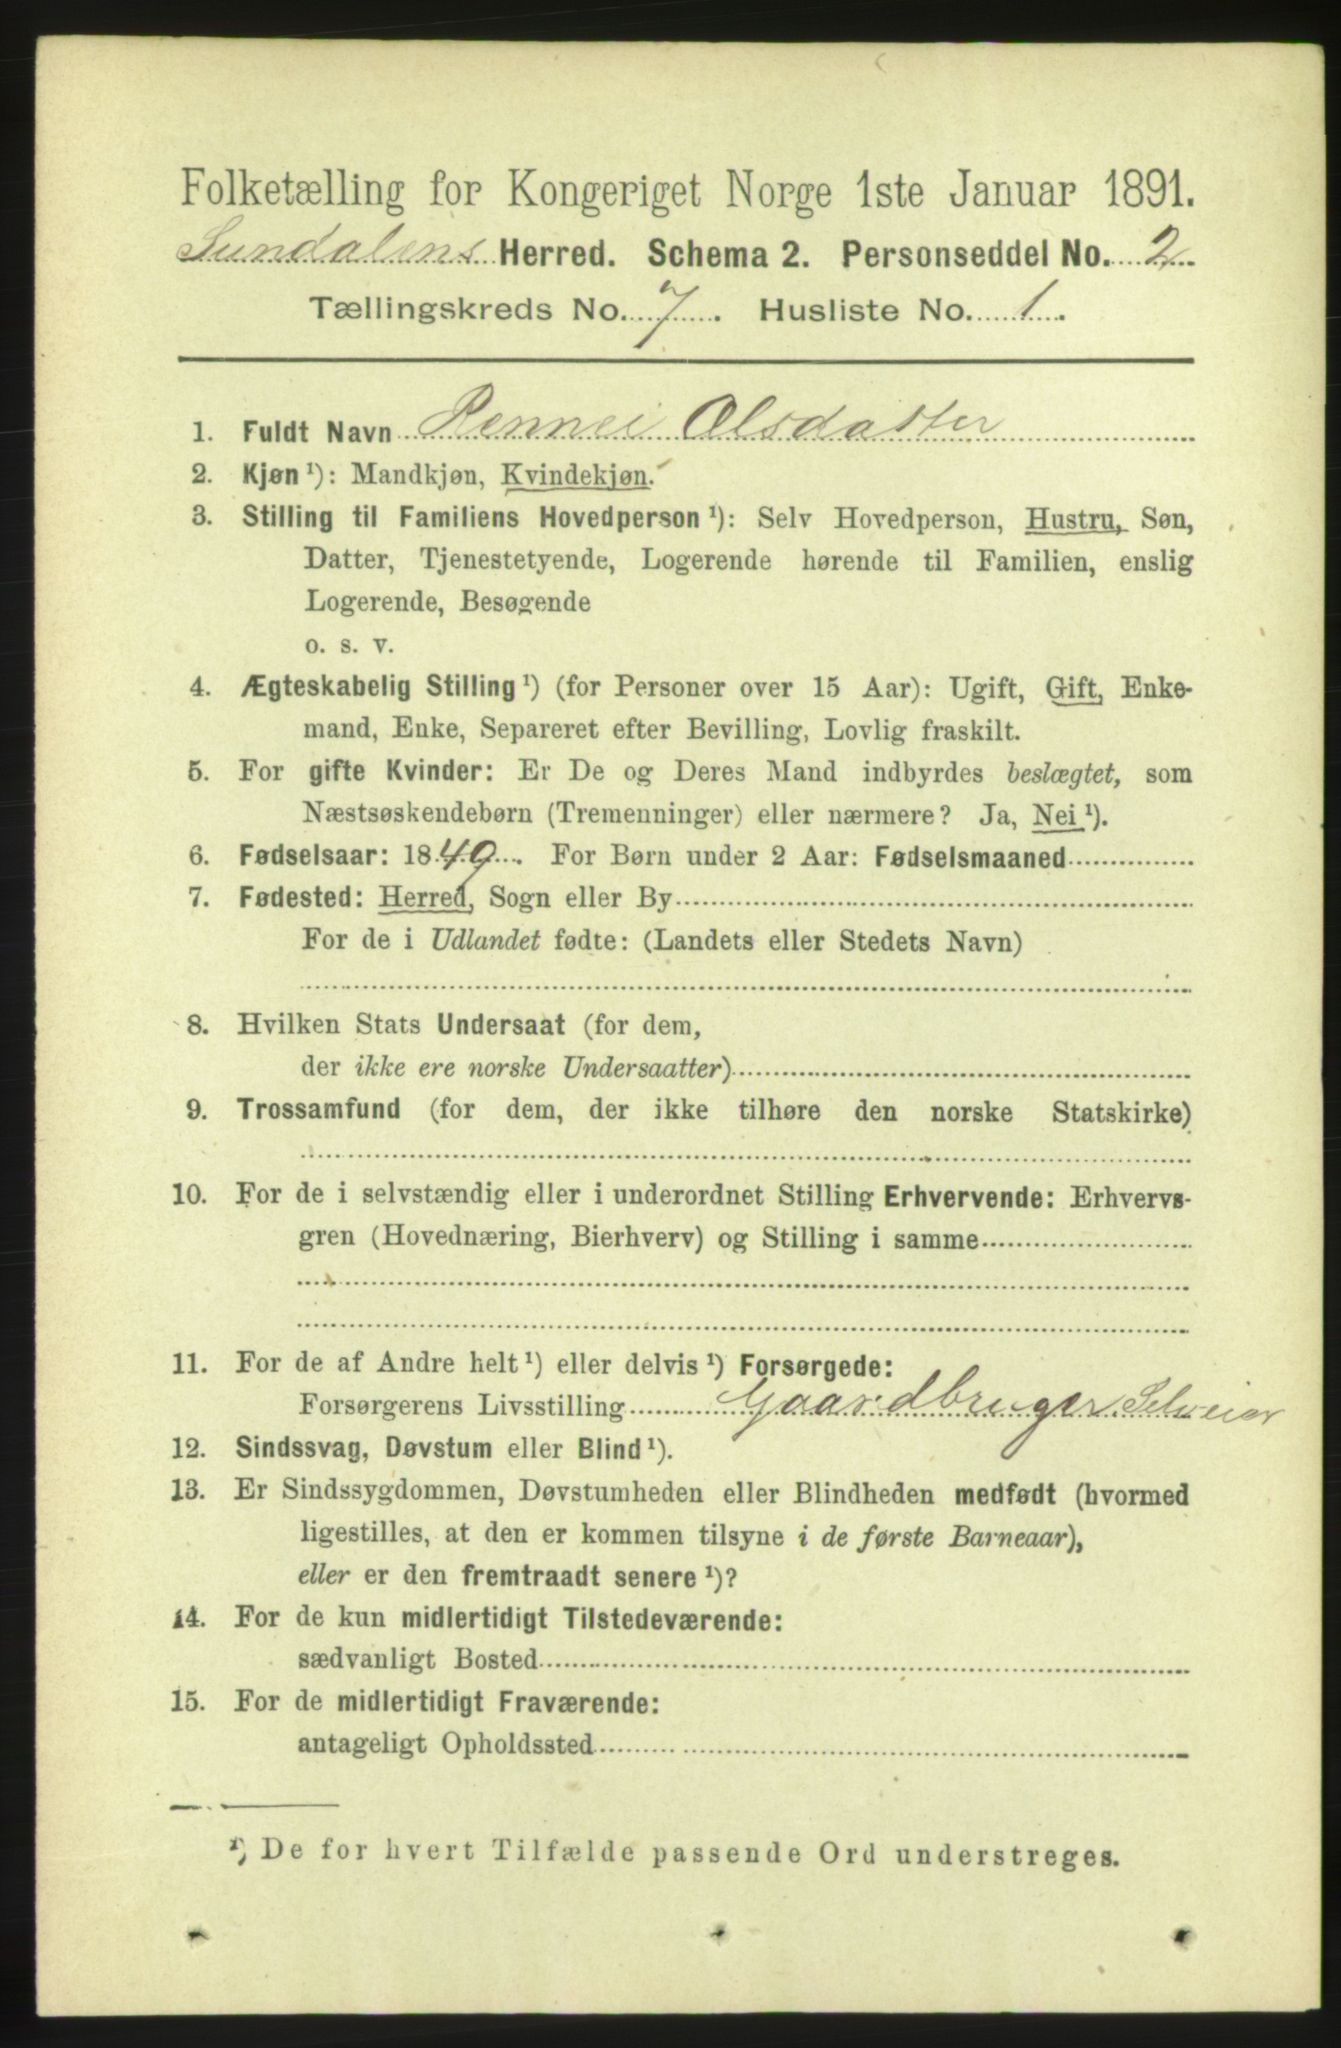 Folketælling for Kongeriget Norge 1ste Januar 1891.
Sundalens Herred. Schema 2. Personseddel No. 2
Tællingskreds No. 7. Husliste No. 1.
1. Fuldt Navn Rennei Olsdatter
2. Kjøn ¹): Mandkjøn, Kvindekjøn.
3. Stilling til Familiens Hovedperson ¹): Selv Hovedperson, Hustru, Søn,
Datter, Tjenestetyende, Logerende hørende til Familien, enslig
Logerende, Besøgende
o. s. v.
4. Ægteskabelig Stilling ¹) (for Personer over 15 Aar): Ugift, Gift, Enke-
mand, Enke, Separeret efter Bevilling, Lovlig fraskilt.
5. For gifte Kvinder: Er De og Deres Mand indbyrdes beslægtet, som
Næstsøskendebørn (Tremenninger) eller nærmere? Ja, Nei ¹).
6. Fødselsaar: 1849. For Børn under 2 Aar: Fødselsmaaned
7. Fødested: Herred, Sogn eller By
For de i Udlandet fødte: (Landets eller Stedets Navn)
8. Hvilken Stats Undersaat (for dem,
der ikke ere norske Undersaatter)
9. Trossamfund (for dem, der ikke tilhøre den norske Statskirke)
10. For de i selvstændig eller i underordnet Stilling Erhvervende: Erhvervs-
gren (Hovednæring, Bierhverv) og Stilling i samme
11. For de af Andre helt ¹) eller delvis ¹) Forsørgede:
Forsørgerens Livsstilling Gaardbruger Selveier
12. Sindssvag, Døvstum eller Blind ¹).
13. Er Sindssygdommen, Døvstumheden eller Blindheden medfødt (hvormed
ligestilles, at den er kommen tilsyne i de første Barneaar),
eller er den fremtraadt senere ¹)?
14. For de kun midlertidigt Tilstedeværende:
sædvanligt Bosted
15. For de midlertidigt Fraværende:
antageligt Opholdssted
¹) De for hvert Tilfælde passende Ord understreges.